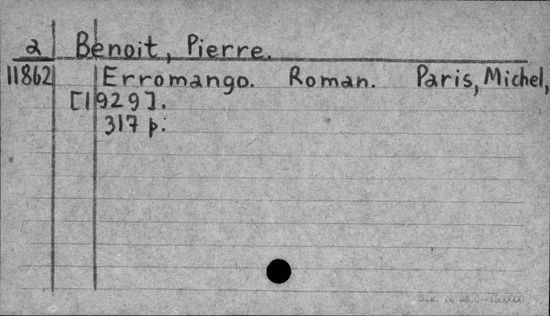 2 Benoit, Pierre.
11862 Erromango. Roman. Paris, Michel,
[1929].
317 p.